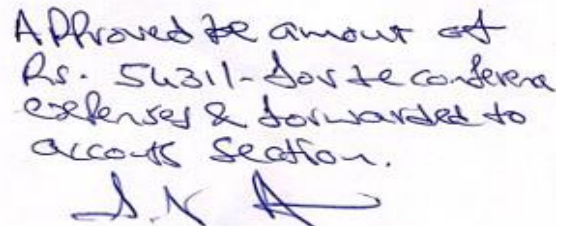 Approved the amount of
Rs. 5431/- for the conference
expenses & forwarded to
accounts section.